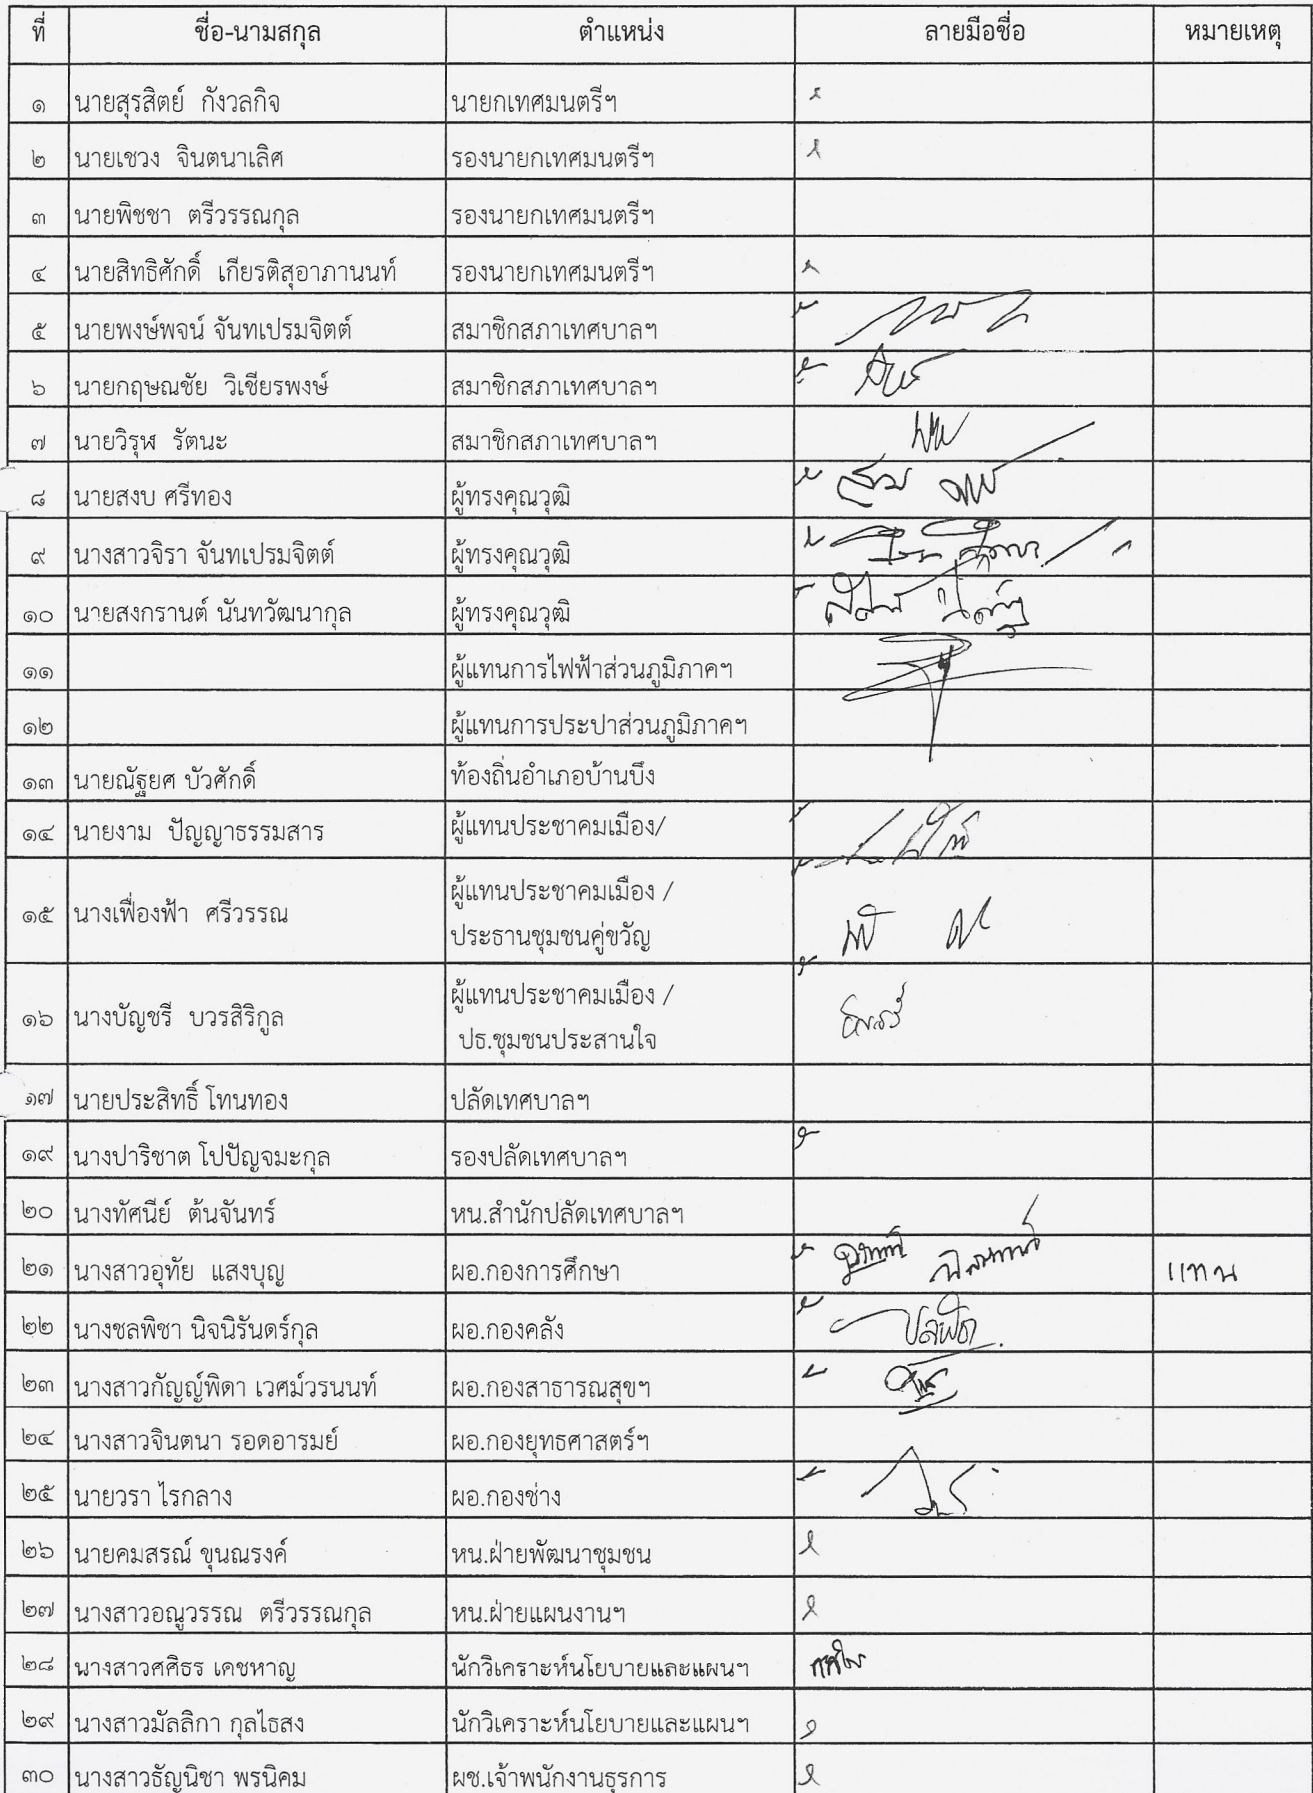 ที่ ชื่อ-นามสกุล ตำแหน่ง ลายมือชื่อ หมายเหตุ
๑ นายสุรสิตย์ กังวลกิจ นายกเทศมนตรีฯ
๒ นายเชวง จินตนาเลิศ รองนายกเทศมนตรีฯ
๓ นายพิชชา ตรีวรรณกุล รองนายกเทศมนตรีฯ
๔ นายสิทธิศักดิ์ เกียรติสุอาภานนท์ รองนายกเทศมนตรีฯ
๕ นายพงษ์พจน์ จันทเปรมจิตต์ สมาชิกสภาเทศบาลฯ
๖ นายกฤษณชัย วิเชียรพงษ์ สมาชิกสภาเทศบาลฯ
๗ นายวิรุฬ รัตนะ สมาชิกสภาเทศบาลฯ
๘ นายสงบ ศรีทอง ผู้ทรงคุณวุฒิ
๙ นางสาวจิรา จันทเปรมจิตต์ ผู้ทรงคุณวุฒิ
๑๐ นายสงกรานต์ นันทวัฒนากุล ผู้ทรงคุณวุฒิ
๑๑ ผู้แทนการไฟฟ้าส่วนภูมิภาคฯ
๑๒ ผู้แทนการประปาส่วนภูมิภาคฯ
๑๓ นายณัฐยศ บัวศักดิ์ ท้องถิ่นอำเภอบ้านบึง
๑๔ นายงาม ปัญญาธรรมสาร ผู้แทนประชาคมเมือง/
๑๕ นางเฟื่องฟ้า ศรีวรรณ ผู้แทนประชาคมเมือง /
ประธานชุมชนคู่ขวัญ
๑๖ นางบัญชรี บวรสิริกูล ผู้แทนประชาคมเมือง /
ปธ.ชุมชนประสานใจ
๑๗ นายประสิทธิ์ โทนทอง ปลัดเทศบาลฯ
๑๙ นางปาริชาต โปปัญจมะกุล รองปลัดเทศบาลฯ
๒๐ นางทัศนีย์ ต้นจันทร์ หน.สำนักปลัดเทศบาลฯ
๒๑ นางสาวอุทัย แสงบุญ ผอ.กองการศึกษา แทน
๒๒ นางชลพิชา นิจนิรันดร์กุล ผอ.กองคลัง
๒๓ นางสาวกัญญ์พิดา เวศม์วรนนท์ ผอ.กองสาธารณสุขฯ
๒๔ นางสาวจินตนา รอดอารมย์ ผอ.กองยุทธศาสตร์ฯ
๒๕ นายวรา ไรกลาง ผอ.กองช่าง
๒๖ นายคมสรณ์ ขุนณรงค์ หน.ฝ่ายพัฒนาชุมชน
๒๗ นางสาวอณูวรรณ ตรีวรรณกุล หน.ฝ่ายแผนงานฯ
๒๘ นางสาวศศิธร เดชหาญ นักวิเคราะห์นโยบายและแผนฯ
๒๙ นางสาวมัลลิกา กุลไธสง นักวิเคราะห์นโยบายและแผนฯ
๓๐ นางสาวธัญนิชา พรนิคม ผช.เจ้าพนักงานธุรการ